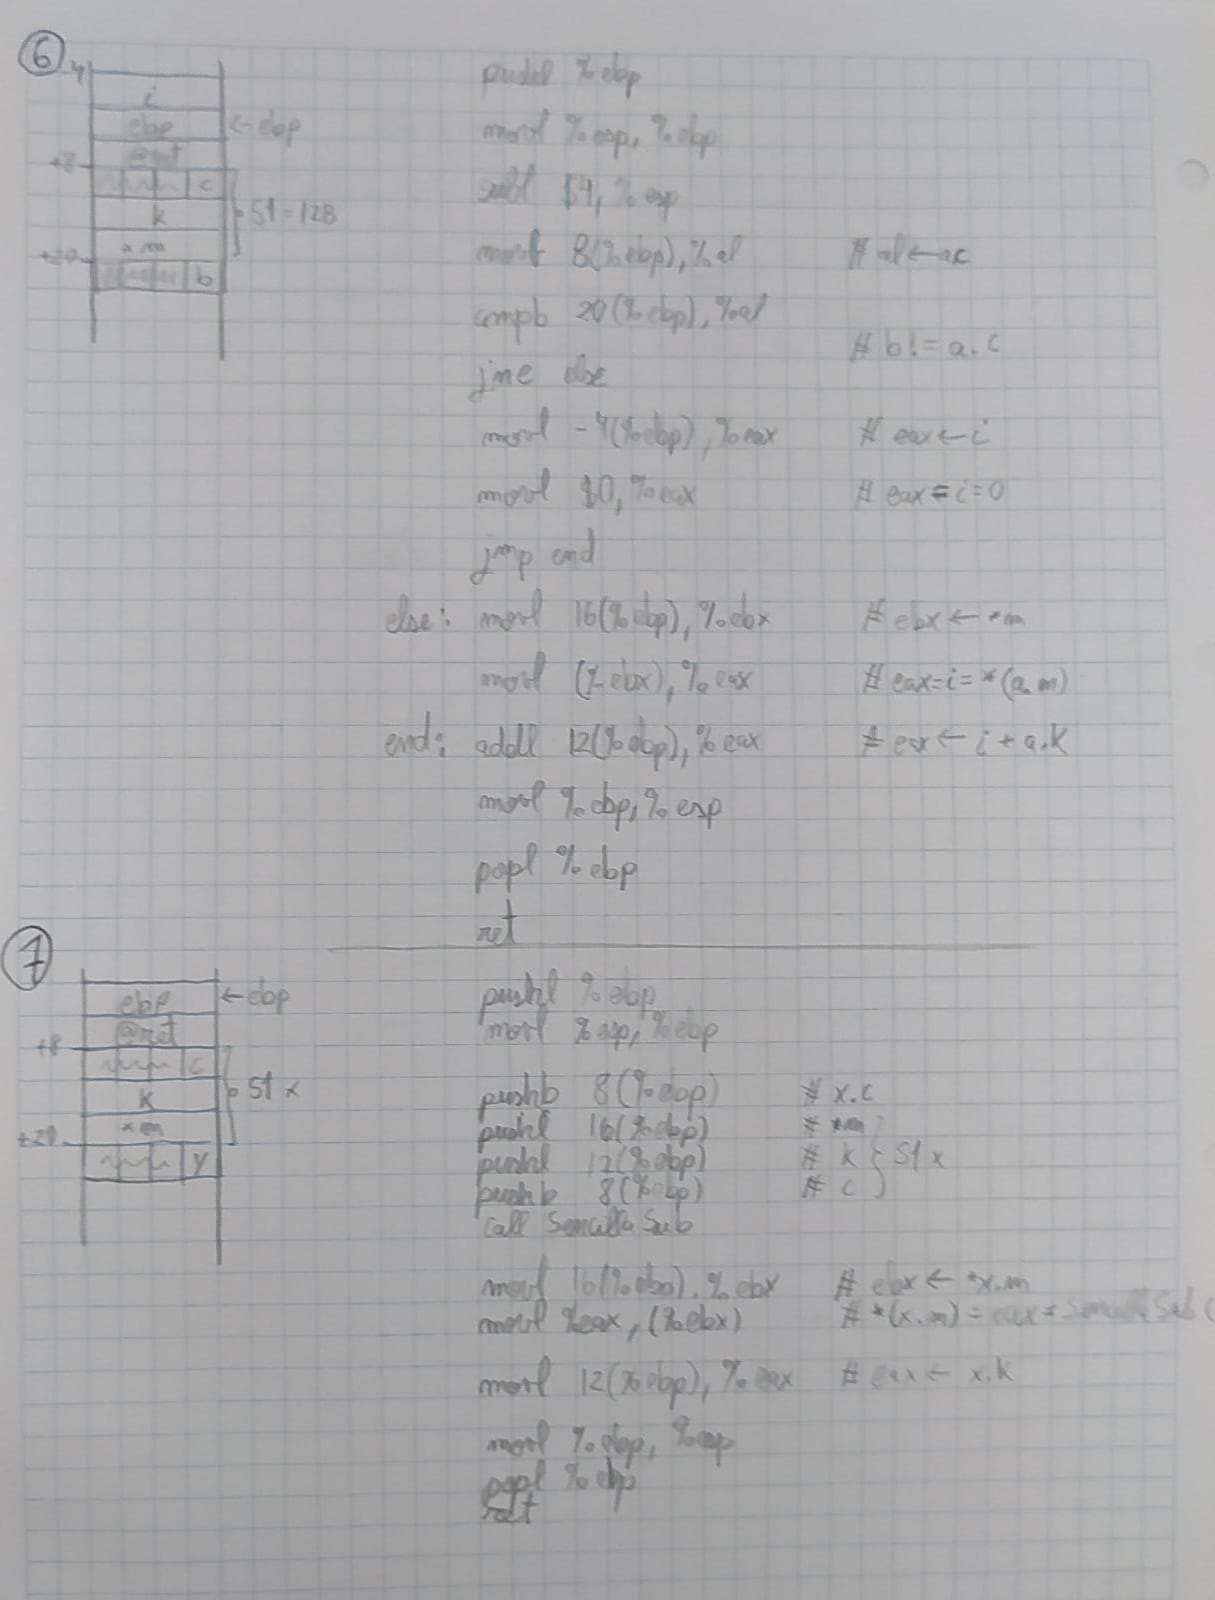 6
-4
i
ebp ← ebp
@ret
+8
c
k
} S1 = 12B
*m
+20
b
pushl %ebp
movl %esp, %ebp
subl $4, %esp
movb 8(%ebp), %al # al ← a.c
cmpb 20(%ebp), %al
# b != a.c
jne else
movl -4(%ebp), %eax # eax ← i
movl $0, %eax # eax = i = 0
jmp end
else: movl 16(%ebp), %ebx # ebx ← *m
movl (%ebx), %eax # eax = i = *(a.m)
end: addl 12(%ebp), %eax # eax ← i + a.k
movl %ebp, %esp
popl %ebp
ret
7
ebp ← ebp
@ret
+8
c
k
} S1 x
*m
+20
y
pushl %ebp
movl %esp, %ebp
pushb 8(%ebp) # x.c
pushl 16(%ebp) # *m
pushl 12(%ebp) # k } S1 x
pushb 8(%ebp) # c
call SencillaSub
movl 16(%ebp), %ebx # ebx ← *x.m
movl %eax, (%ebx) # *(x.m) = eax = SencillaSub(
movl 12(%ebp), %eax # eax ← x.k
movl %ebp, %esp
popl %ebp
ret